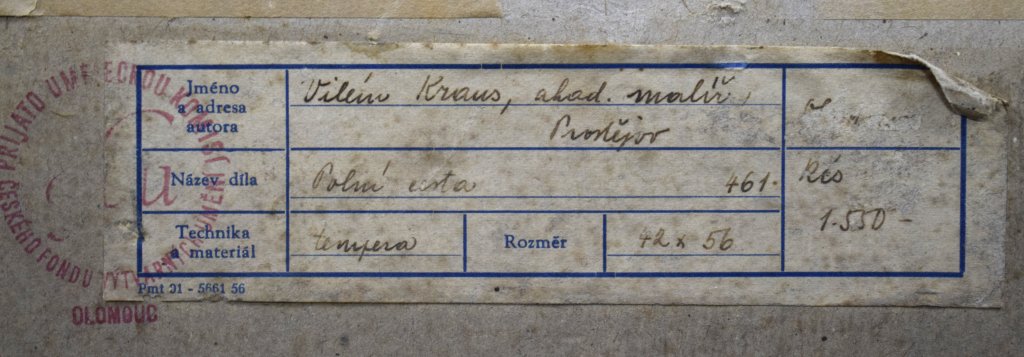 PŘIJATO UMĚLECKOU KOMISÍ
ČESKÉHO FONDU VÝTVARNÝCH UMĚNÍ
OLOMOUC
Jméno
a adresa
autora
Vilém Kraus, akad. malíř,
Prostějov
Název díla
Polní cesta 461.
Kčs
1.550-
Technika
a materiál
tempera
Rozměr
42 x 56
Pmt 01 - 5661 56